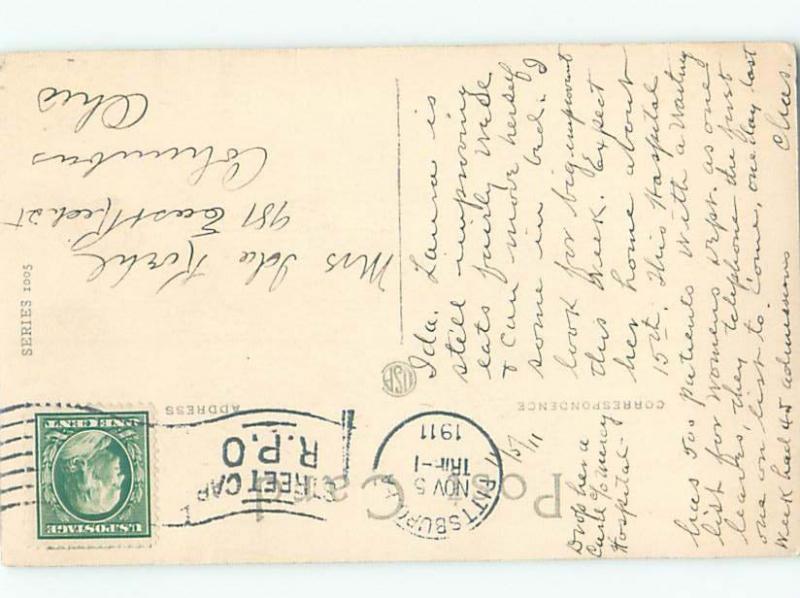 Post Card
CORRESPONDENCE
ADDRESS
SERIES 1005
USA
PITTSBURGH
NOV 5
1911
STREET CAR
R.P.O
U.S. POSTAGE
ONE CENT
11/5/11
Mrs Ida
981 East Rich st
Columbus
Ohio
Ida. Laura is
still improving
eats fairly well
& can move herself
some in bed. I
look for big improvmt
this week. Expect
her home about
15th. This Hospital
has 500 patients with a waiting
list for womens Dept. as one
leaves, they telephone the first
one on list to come, one day last
week had 45 admissions
Chas.
Drop her a
Card c/o Mercy
Hospital.